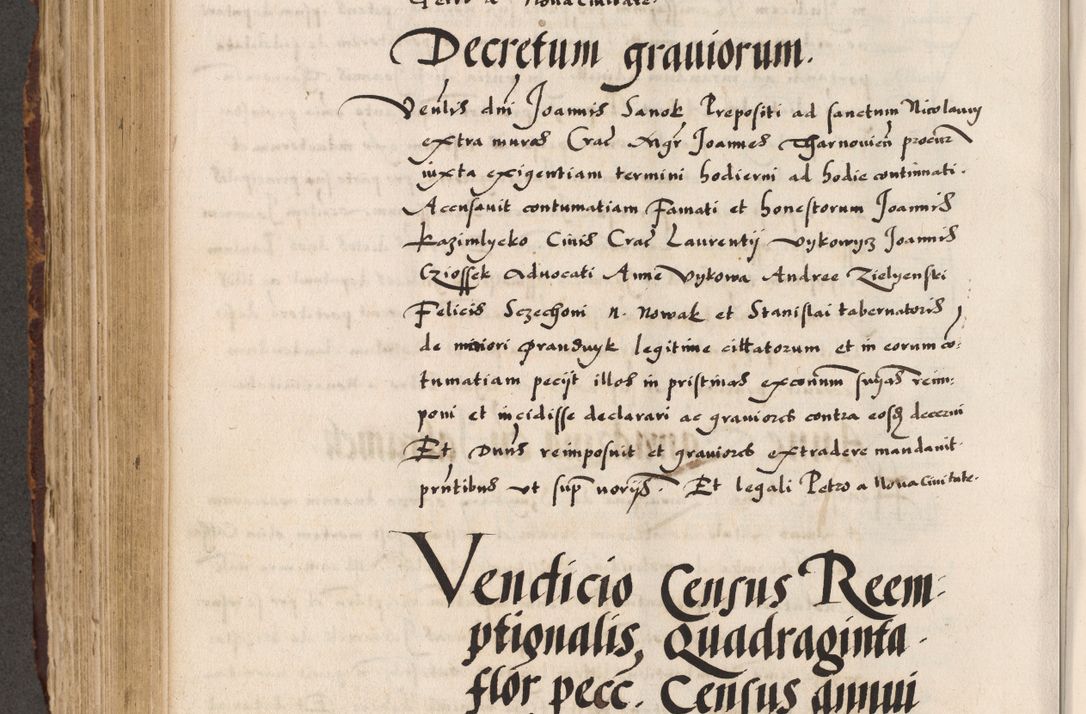 Petro a Nova Civitate.
Decretum grauiorum.
Venlis dni Joannis Sanok Prepositi ad sanctum Nicolaum
extra muros Crac Mgr Joannes Tharnovien procur
iuxta exigentiam termini hodierni ad hodie continuati.
Accusauit contumatiam Famati et honestorum Joannis
Kazimlycko Ciuis Crac Laurentij Vykowysz Joannis
Cziossek Aduocati Anne Vykowa Andree Zielyenski
Felicis Sczechoni N. Nowak et Stanislai tabernatoris
de minori Prandnyk legitime cittatorum et in eorum co:
tumatiam pecijt illos in pristinas exconum suyas reim:
poni et incidisse declarari ac grauiores contra eosq decerni
Et Duns reimposuit et grauiores extradere mandauit
pntibus ut sup norijs. Et legali Petro a Nova Civitate.
Vendicio Census Reem:
ptionalis, Quadraginta.
flor pecc. Census annui